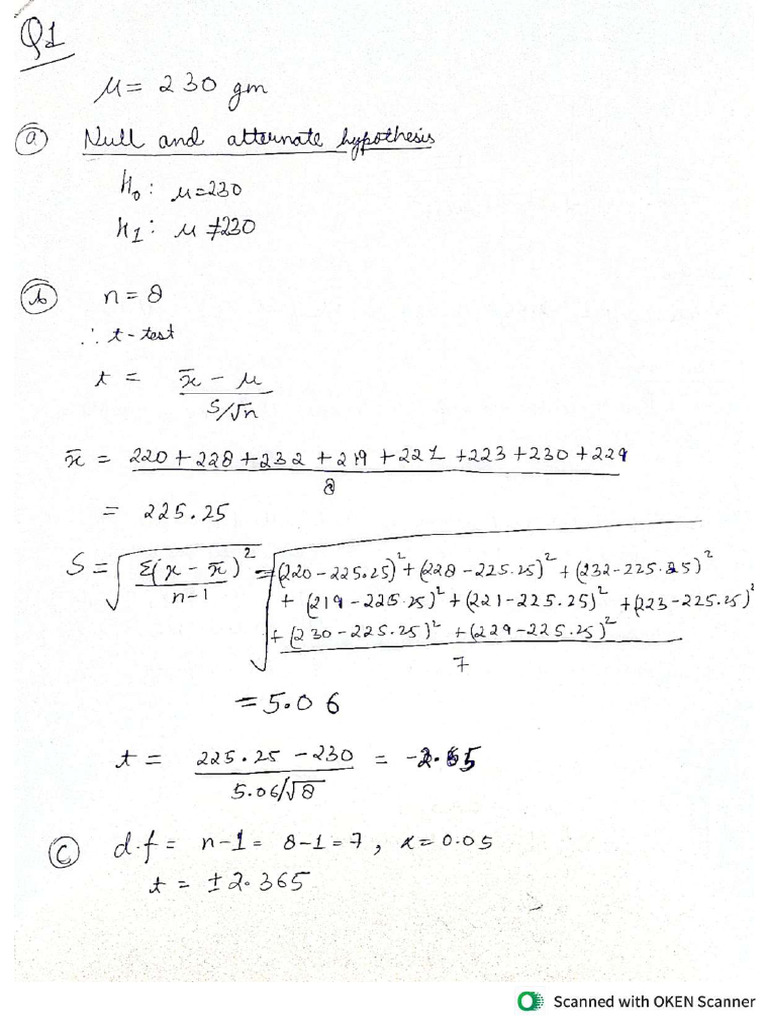 Q1
μ = 230 gm
(a) Null and alternate hypothesis
H₀: μ=230
H₁: μ ≠230
(b) n = 8
∴ t-test
t = (x̄ - μ) / (S/√n)
x̄ = (220 + 228 + 232 + 219 + 221 + 223 + 230 + 229) / 8
= 225.25
S = √(Σ(x - x̄)² / (n-1)) = √(((220-225.25)² + (228-225.25)² + (232-225.25)²
+ (219-225.25)² + (221-225.25)² + (223-225.25)²
+ (230-225.25)² + (229-225.25)²) / 7)
= 5.06
t = (225.25 - 230) / (5.06/√8) = -2.65
(c) d.f = n-1 = 8-1 = 7, α = 0.05
t = ±2.365
Scanned with OKEN Scanner